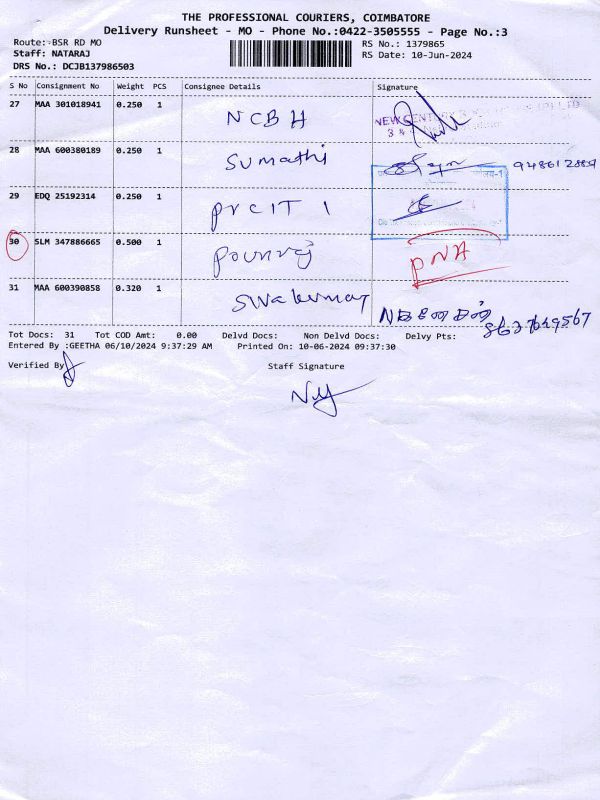 THE PROFESSIONAL COURIERS, COIMBATORE
Delivery Runsheet - MO - Phone No.:0422-3505555 - Page No.:3
Route:-BSR RD MO
RS No.: 1379865
Staff: NATARAJ
RS Date: 10-Jun-2024
DRS No.: DCJB137986503
S No Consignment No Weight PCS Consignee Details Signature
27 MAA 301018941 0.250 1 NCBH
28 MAA 600380189 0.250 1 Sumathi
29 EDQ 25192314 0.250 1 PrCIT 1
30 SLM 347886665 0.500 1 Pounraj PNA
31 MAA 600390858 0.320 1 Sivakumar 8637649567
Tot Docs: 31 Tot COD Amt: 0.00 Delvd Docs: Non Delvd Docs: Delvy Pts:
Entered By :GEETHA 06/10/2024 9:37:29 AM Printed On: 10-06-2024 09:37:30
Verified By
Staff Signature